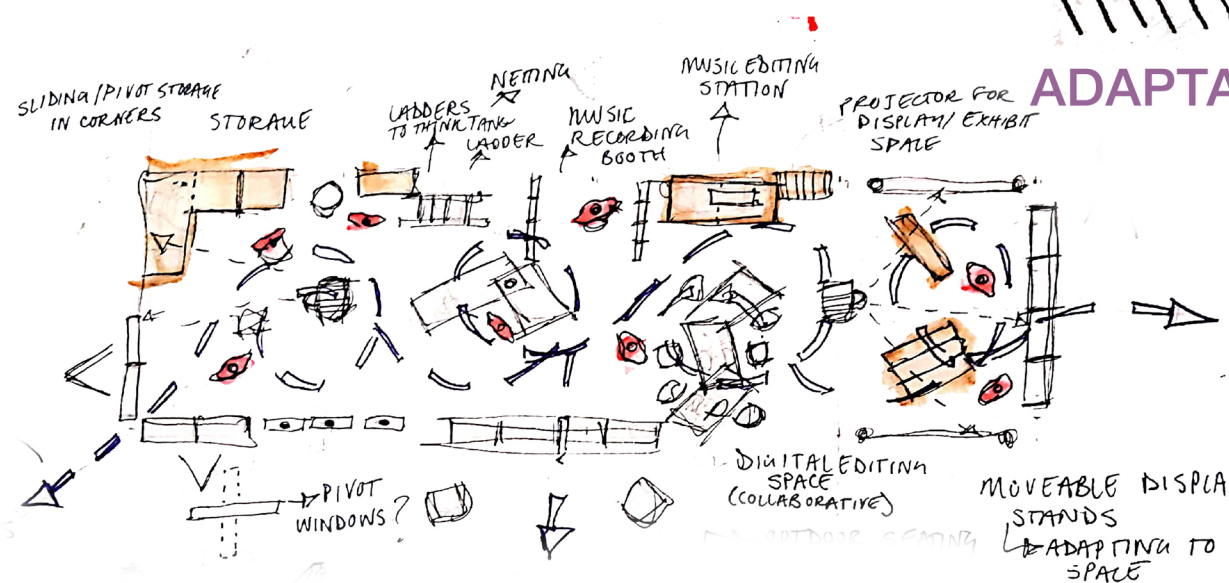 SLIDING/PIVOT STORAGE
IN CORNERS
STORAGE
NETTING
LADDERS
TO THINK TANG
LADDER
MUSIC
RECORDING
BOOTH
MUSIC EDITING
STATION
PROJECTOR FOR
DISPLAY/ EXHIBIT
SPACE
ADAPTA
PIVOT
WINDOWS?
DIGITAL EDITING
SPACE
(COLLABORATIVE)
OUTDOOR SEATING
MOVEABLE DISPLA
STANDS
ADAPTING TO
SPACE